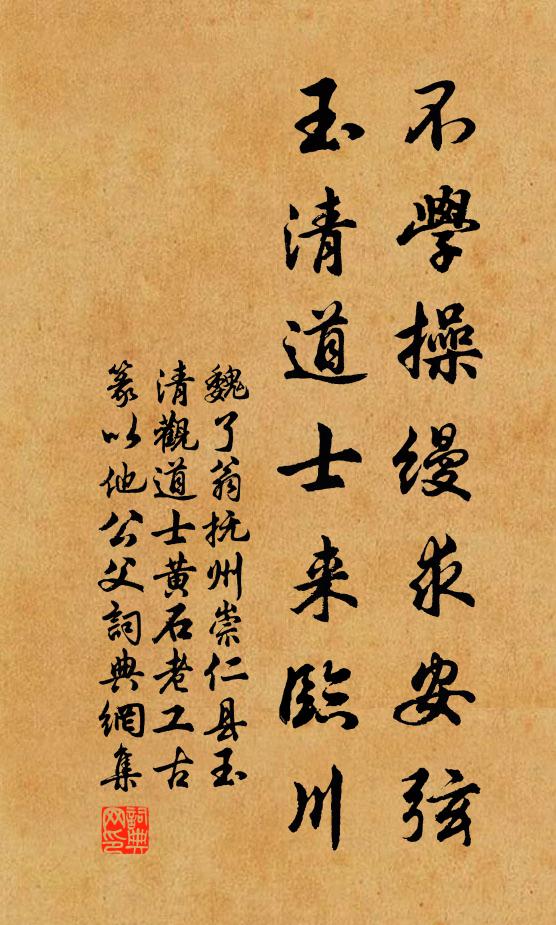 不學操缦求安弦
玉清道士来臨川
魏了翁抚州崇仁县玉
清觀道士黄石老工古
篆以他公父詞典網集
詞典
网印